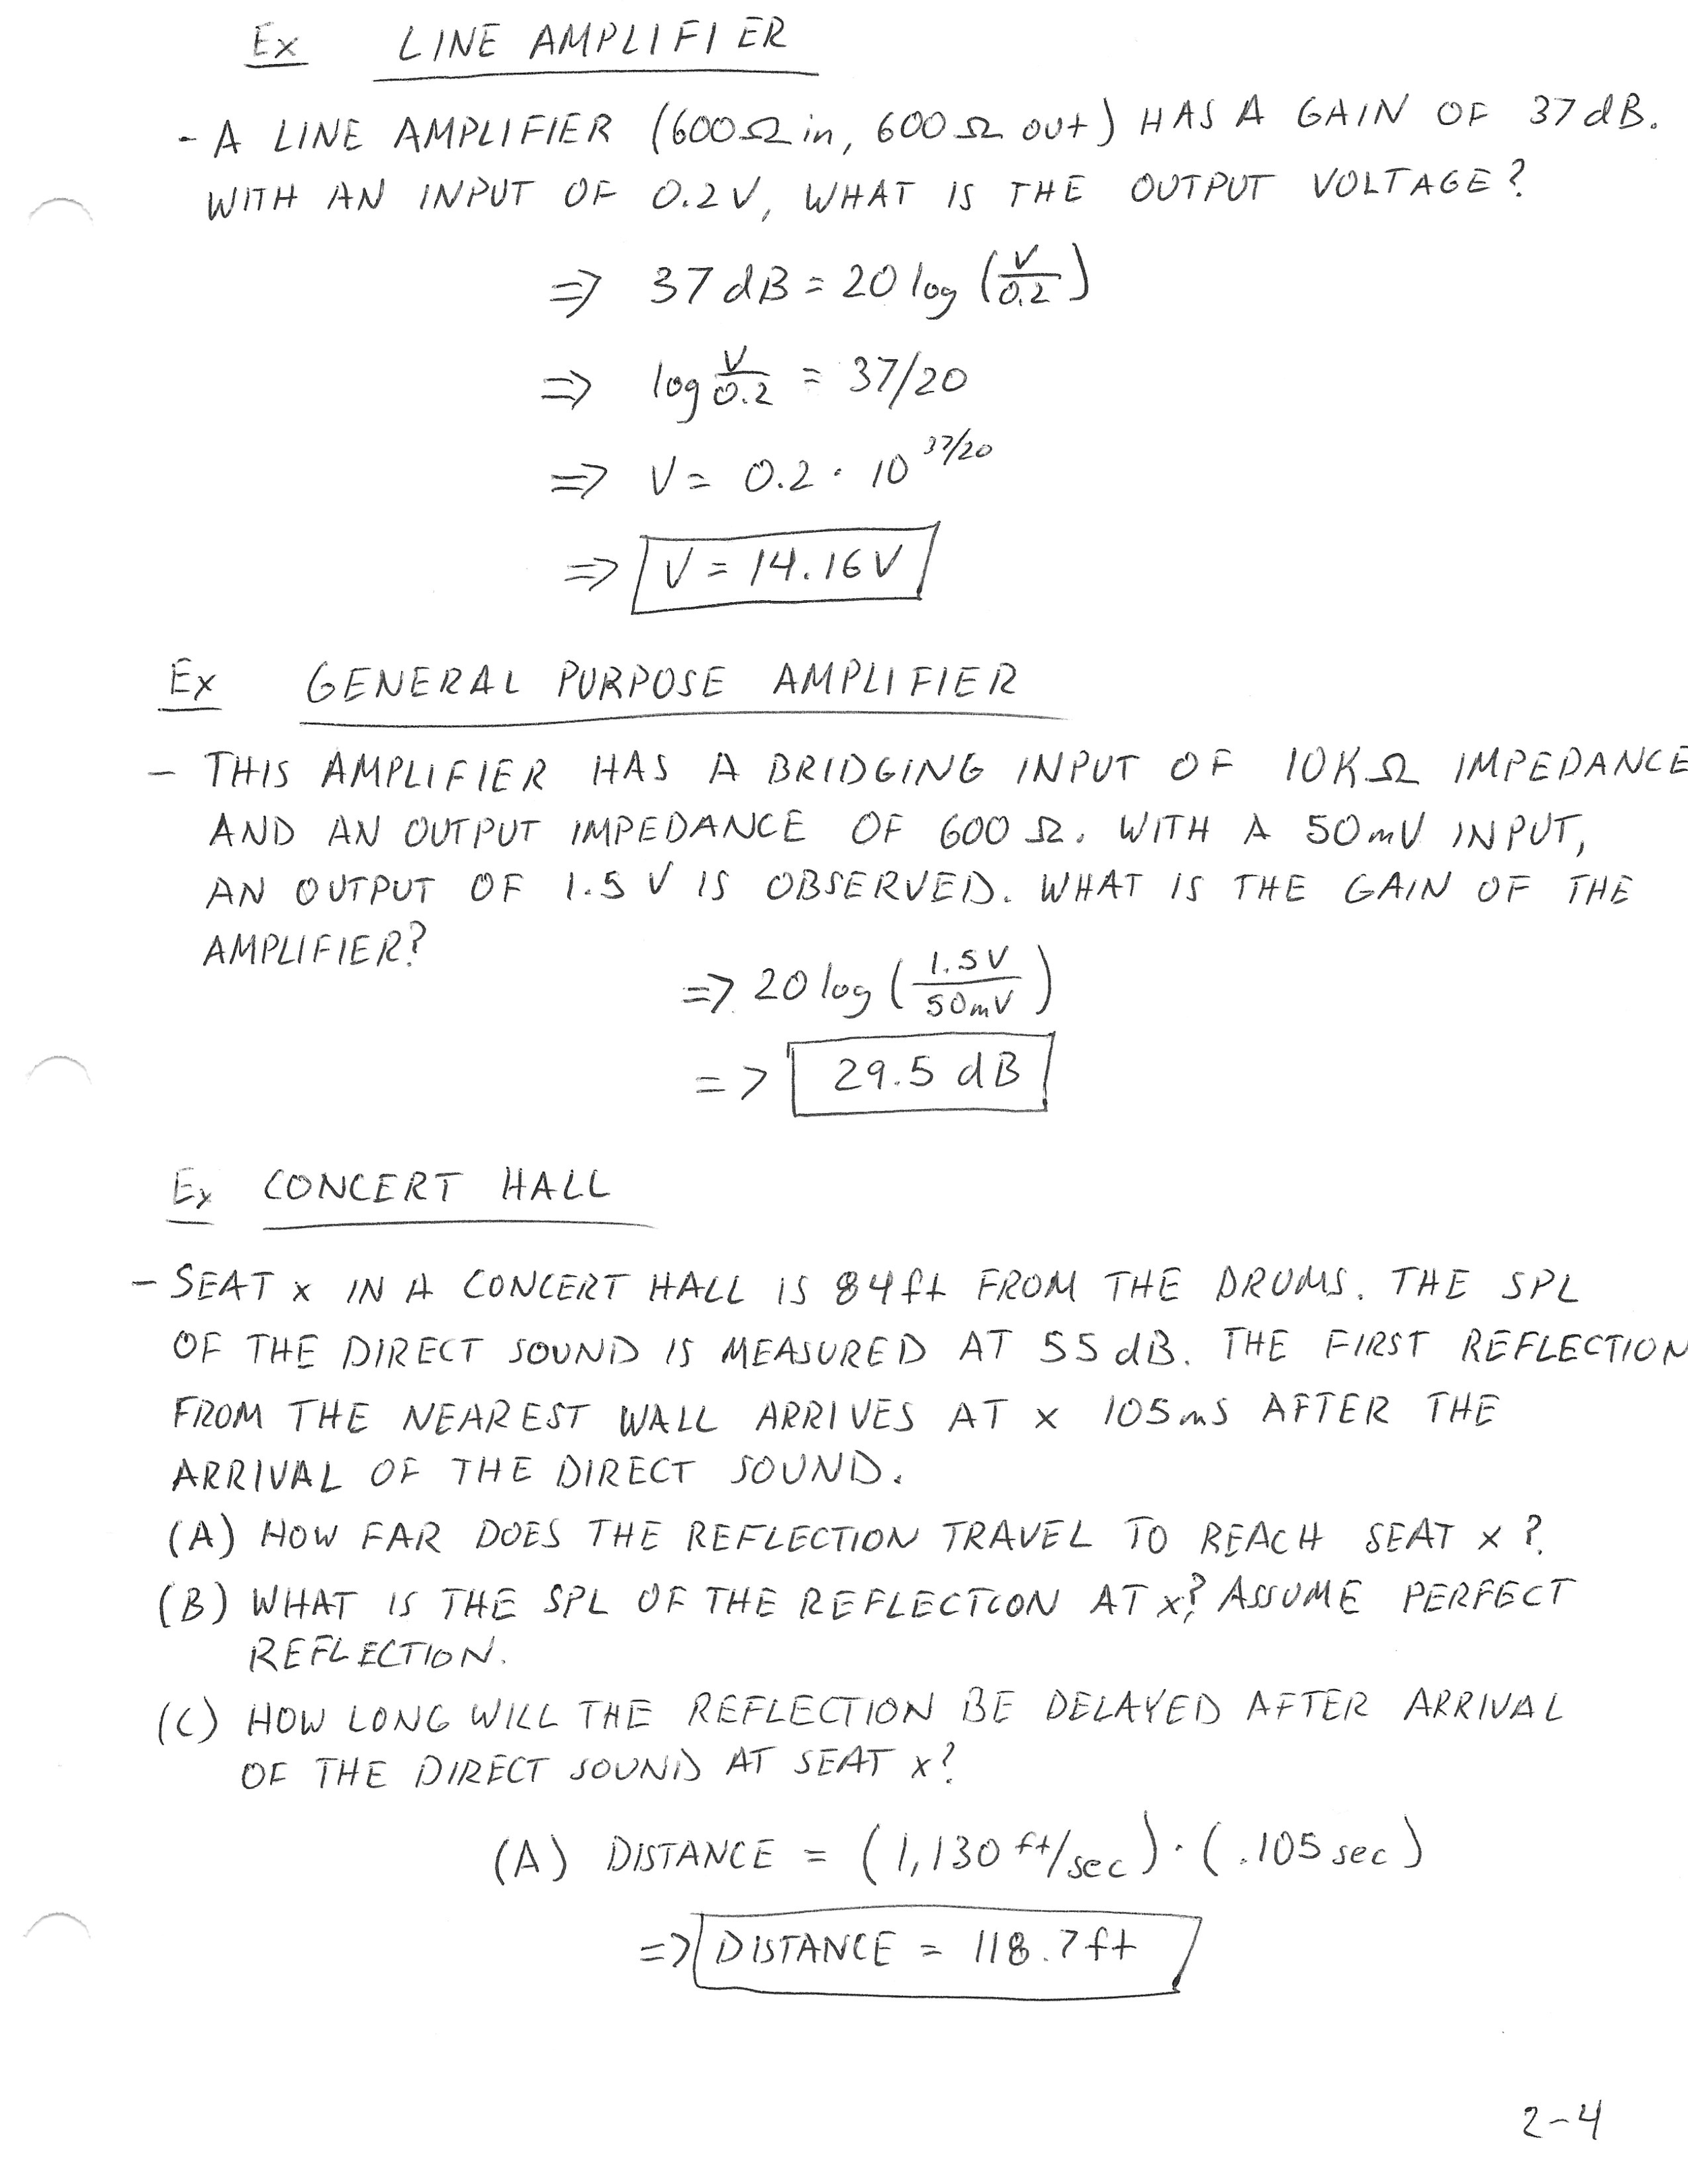 Ex LINE AMPLIFIER
- A LINE AMPLIFIER (600Ω in, 600Ω out) HAS A GAIN OF 37 dB.
WITH AN INPUT OF 0.2V, WHAT IS THE OUTPUT VOLTAGE?
⇒ 37 dB = 20 log (V/0.2)
⇒ log V/0.2 = 37/20
⇒ V = 0.2 · 10^37/20
⇒ V = 14.16V
Ex GENERAL PURPOSE AMPLIFIER
- THIS AMPLIFIER HAS A BRIDGING INPUT OF 10KΩ IMPEDANCE
AND AN OUTPUT IMPEDANCE OF 600 Ω. WITH A 50mV INPUT,
AN OUTPUT OF 1.5 V IS OBSERVED. WHAT IS THE GAIN OF THE
AMPLIFIER?
=> 20 log (1.5V/50mV)
=> 29.5 dB
Ex CONCERT HALL
- SEAT x IN A CONCERT HALL IS 84ft FROM THE DRUMS. THE SPL
OF THE DIRECT SOUND IS MEASURED AT 55 dB. THE FIRST REFLECTION
FROM THE NEAREST WALL ARRIVES AT x 105ms AFTER THE
ARRIVAL OF THE DIRECT SOUND.
(A) HOW FAR DOES THE REFLECTION TRAVEL TO REACH SEAT x?
(B) WHAT IS THE SPL OF THE REFLECTION AT x? ASSUME PERFECT
REFLECTION.
(C) HOW LONG WILL THE REFLECTION BE DELAYED AFTER ARRIVAL
OF THE DIRECT SOUND AT SEAT x?
(A) DISTANCE = (1,130 ft/sec) · (.105 sec)
=> DISTANCE = 118.7ft
2-4